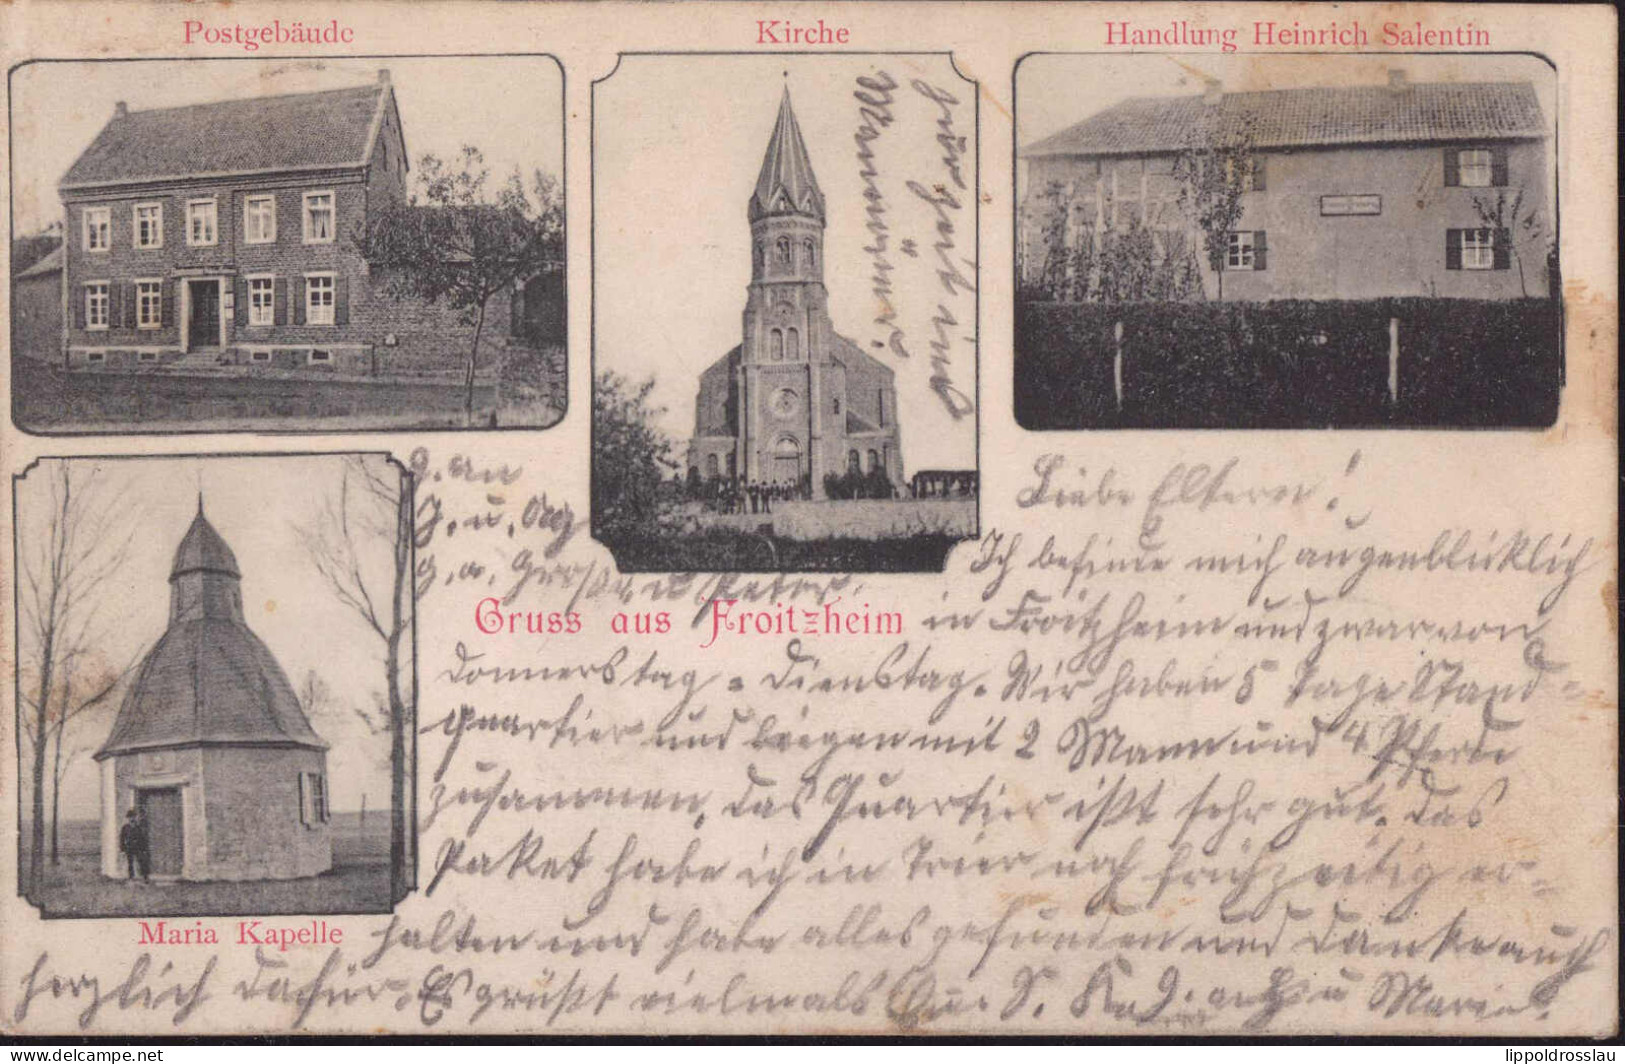 Postgebäude
Kirche
Handlung Heinrich Salentin
Manöver
g. an
J. u.
g. a. u Peter.
Gruss aus Froitzheim
Maria Kapelle
Liebe Eltern!
Ich befinde mich augenblicklich
in Froitzheim und zwar von
Donnerstag - Dienstag. Wir haben 5 Tage Stand-
quartier und liegen mit 2 Mann und 4 Pferde
zusammen, das Quartier ist sehr gut. Das
Paket habe ich in Trier noch frühzeitig er-
halten und habe alles gefunden und danke auch
herzlich dafür. Es grüßt vielmals S. u Maria.
Delcampe.net
lippoldrosslau